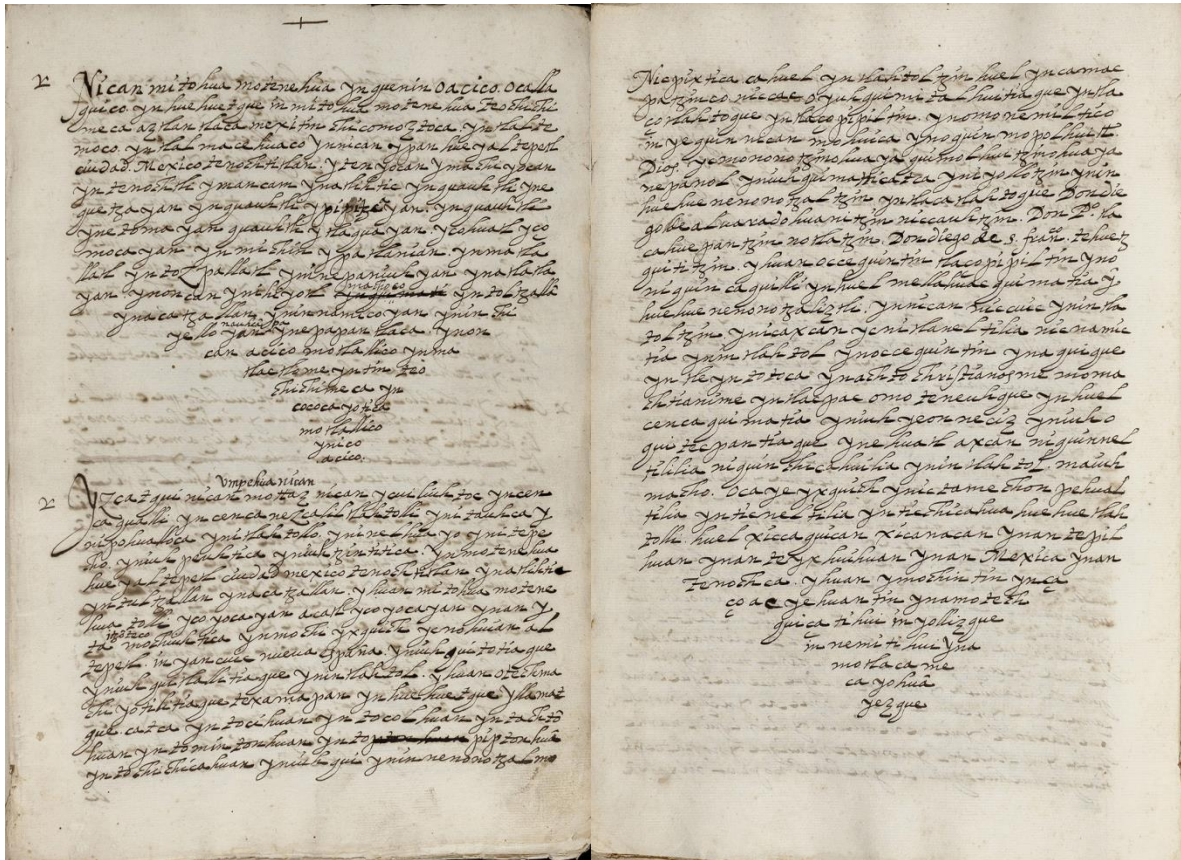 Nican mitohua motenehua yn quenin oacico. ocalla
quico yn huehuetque in mitohua motenehua teochichi
meca aztlan tlaca mexitin chicomoztoca. yn tlalte
moco. yn tlalmacehuaco yn nican ypan huey altepetl
ciudad. Mexico tenochtitlan. yteyocan ymachiyocan
yn tenochtli ymancan yn atlihtic yn quauhtli yne
quetzayan. yn quauhtli ypipitzcayan. yn quauhtli
ynetomayan quauhtli ytlaquayan. ycohuatl yço
mocayan. yn michin ypatlanian. yn matla
llatl yn toxpallatl ynnepaniuhyan. yn atlatla
yan. yn oncan yn ihiyotl machoco yn toltzallã
yn acatzallan. ynnenamicoyan yn inchi
yelloyan nauhcãpa ynepapan tlaca. yn on
can acico motlallico yn ma
tlactlome yn tin teo
chichimeca yn
cococayotica
motlallico
ynico
acico.
Umpehua nican
Yzcatqui nican mottaz nican ycuiliuhtoc yn cen
ca qualli yn cenca nezcalillahtolli yn itauhca y
nipohualloca yn itlahtollo. yn inelhuayo yn itzpe
cho. yniuh peuhtica yniuh tzintitica. yn moteneuhua
huey altepetl ciudad mexico tenochtitlan yn atlihtic
yn tultzallan yn acatzallan. yhuan mitohua motene
hua tolli ycoyocayan acatl ycoyocayan ynan y
ta ytzonteco mochiuhtica yn mochi yxquich ye nohuian al
tepetl. in yancuic nueva españa. yniuh quitotiaque
yniuh quitlallitiaque ynintlahtol. yhuan otechma
chiyotilitiaque texamapan yn huehuetque. yllamat
que. catca yn tocihuan yn tocolhuan yn tachtõ
huan yn tomintonhuan yn topiptonhuã
yn tochichicahuan yniuhqui ynin nenonotzal mo
Nicpixtica ca huel yn tlahtoltzin huel yn camac
patzinco niccac. o yuh quimitalhuitiaque yn tla
çotlahtoque yn tlaçopipiltin. ynomonemiltico
in yequin nican mohuica ynoquinmopolhuili
Dios. yemononotzinohuaya quimolhuitzinohuaya
nepanol yniuh quimatticatca yn iyollotzin ynin
huehuenenonotzaltzin yn tlaca tlahtoque. Don die
go de alvarado huanitzin niccauhtzin. Don Pº. tla
cahuepantzin notlatzin. Don diego de S. franco. tehuetz
quititzin. yhuan occequintin tlaçopipiltin yno
niquincaquilli yn huel mellahuac quimatia y
huehuenenonotzaliztli. yn nican niccuic ynintla
toltzin yn icaxcan yc nitlaneltilia nicnamic
tia yn intlahtol. yn occequintin yn aquique
yn tle yntotoca yn achto christianosme moma
chtianime yn tlacpac omoteneuhque yn huel
cenca quimatia yniuh yeonneciz yniuh o
quitecpantiaque ynehuatl axcan niquinnel
tililia niquinchicahuilia yn intlahtol. mauh
macho. Oca ye yxquich yn ictamechonpehual
tilia ynticneltilia ynticchicahua huehuetlah
tolli. huel xiccaquican xicanacan ynantepil
huan ynanteyxhuihuan ynan Mexica ynan
tenochca. yhuan ynmochintin ynça
çoac yehuantin ynamotech
quiçatihui in yollizque
in nemitihui yna
motlacame
cayohuã
yezque